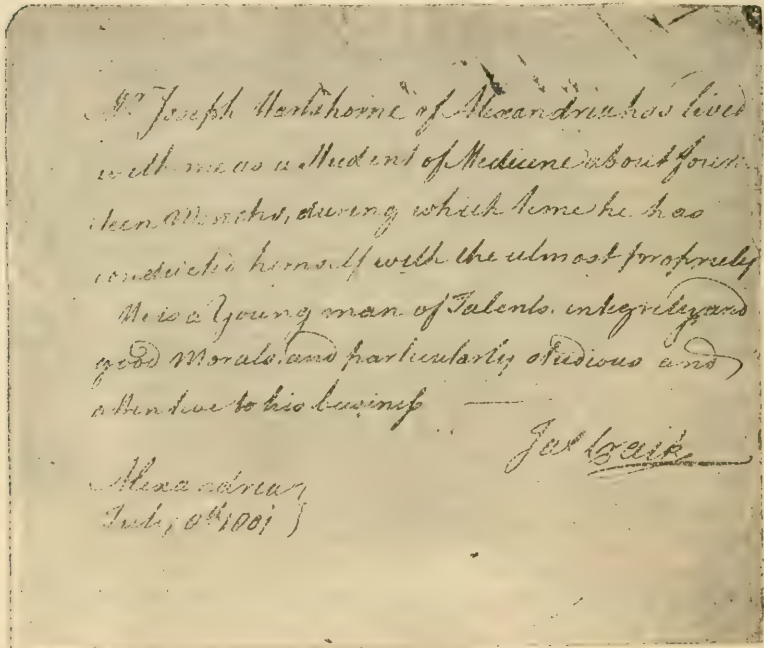 Mr Joseph Hartshorne of Alexandria has lived
with me as a Student of Medicine about four-
teen Months, during which time he has
conducted himself with the utmost propriety
He is a Young man of Talents, integrity and
good Morals and particularly studious and
attentive to his businefs —
Jas Craik
Alexandria
July 8th 1801